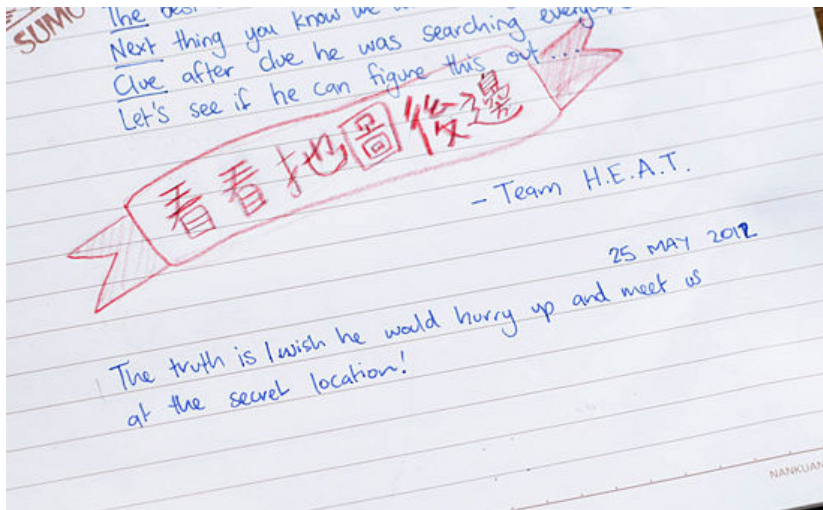 SUMO
The best
Next thing you know we
Clue after clue he was searching
Let's see if he can figure this out...
看看地圖後邊
- Team H.E.A.T.
25 MAY 2012
The truth is I wish he would hurry up and meet us
at the secret location!
NANKUAN